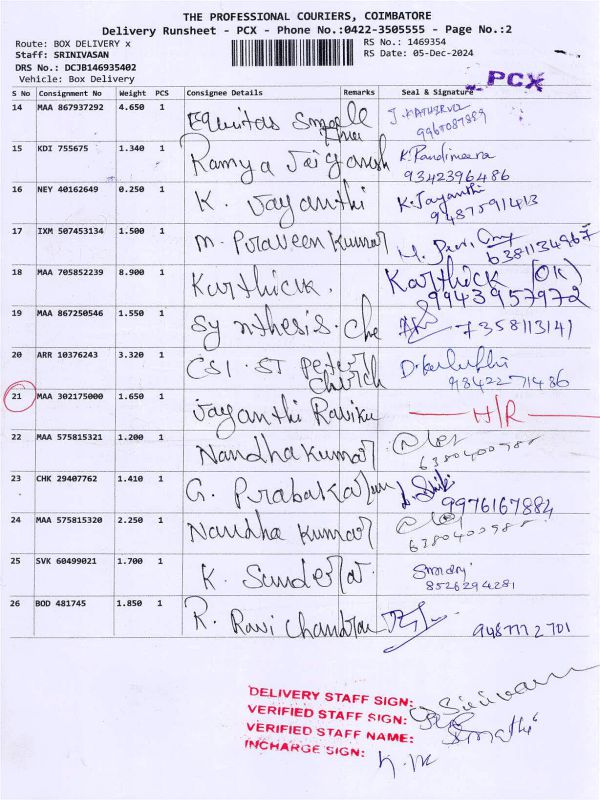 THE PROFESSIONAL COURIERS, COIMBATORE
Delivery Runsheet - PCX - Phone No.:0422-3505555 - Page No.:2
Route: BOX DELIVERY x RS No.: 1469354
Staff: SRINIVASAN RS Date: 05-Dec-2024
DRS No.: DCJB146935402
Vehicle: Box Delivery PCX
S No Consignment No Weight PCS Consignee Details Remarks Seal & Signature
14 MAA 867937292 4.650 1 Equitas Small
15 KDI 755675 1.340 1 Ramya Jaiganesh K. Pandimeera
9342396486
16 NEY 40162649 0.250 1 K. Jayanthi K. Jayanthi
9487591413
17 IXM 507453134 1.500 1 M. Praveen Kumar
6381134967
18 MAA 705852239 8.900 1 Karthick. Karthick (OK)
9943957972
19 MAA 867250546 1.550 1 Synthesis. Che 7358113141
20 ARR 10376243 3.320 1 CSI. ST Peter
Church 9842271486
21 MAA 302175000 1.650 1 Jayanthi Raviku H/R
22 MAA 575815321 1.200 1 Nandha Kumar
23 CHK 29407762 1.410 1 G. Prabakaran
9976167884
24 MAA 575815320 2.250 1 Nandha Kumar
25 SVK 60499021 1.700 1 K. Sunder
8526294281
26 BOD 481745 1.850 1 R. Ravi Chandran
9487772701
DELIVERY STAFF SIGN:
VERIFIED STAFF SIGN:
VERIFIED STAFF NAME:
INCHARGE SIGN: